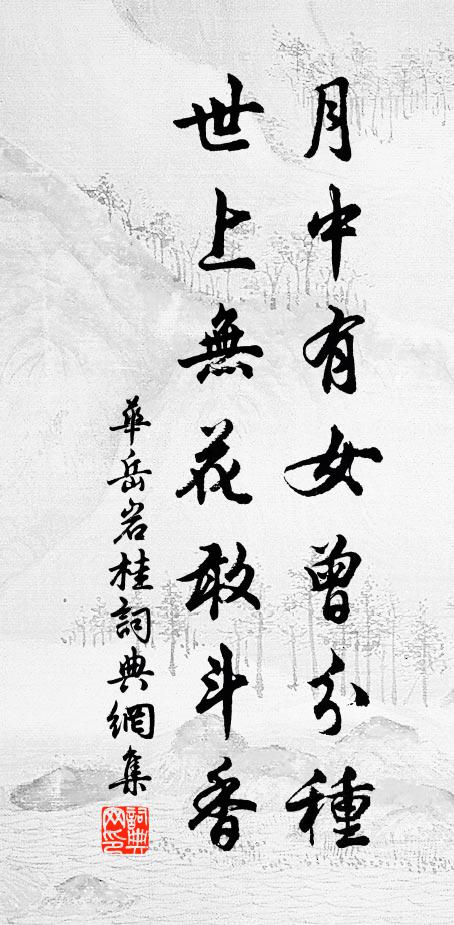 月中有女曾分種
世上無花敢斗香
華岳岩桂詞典網集
詞典网印